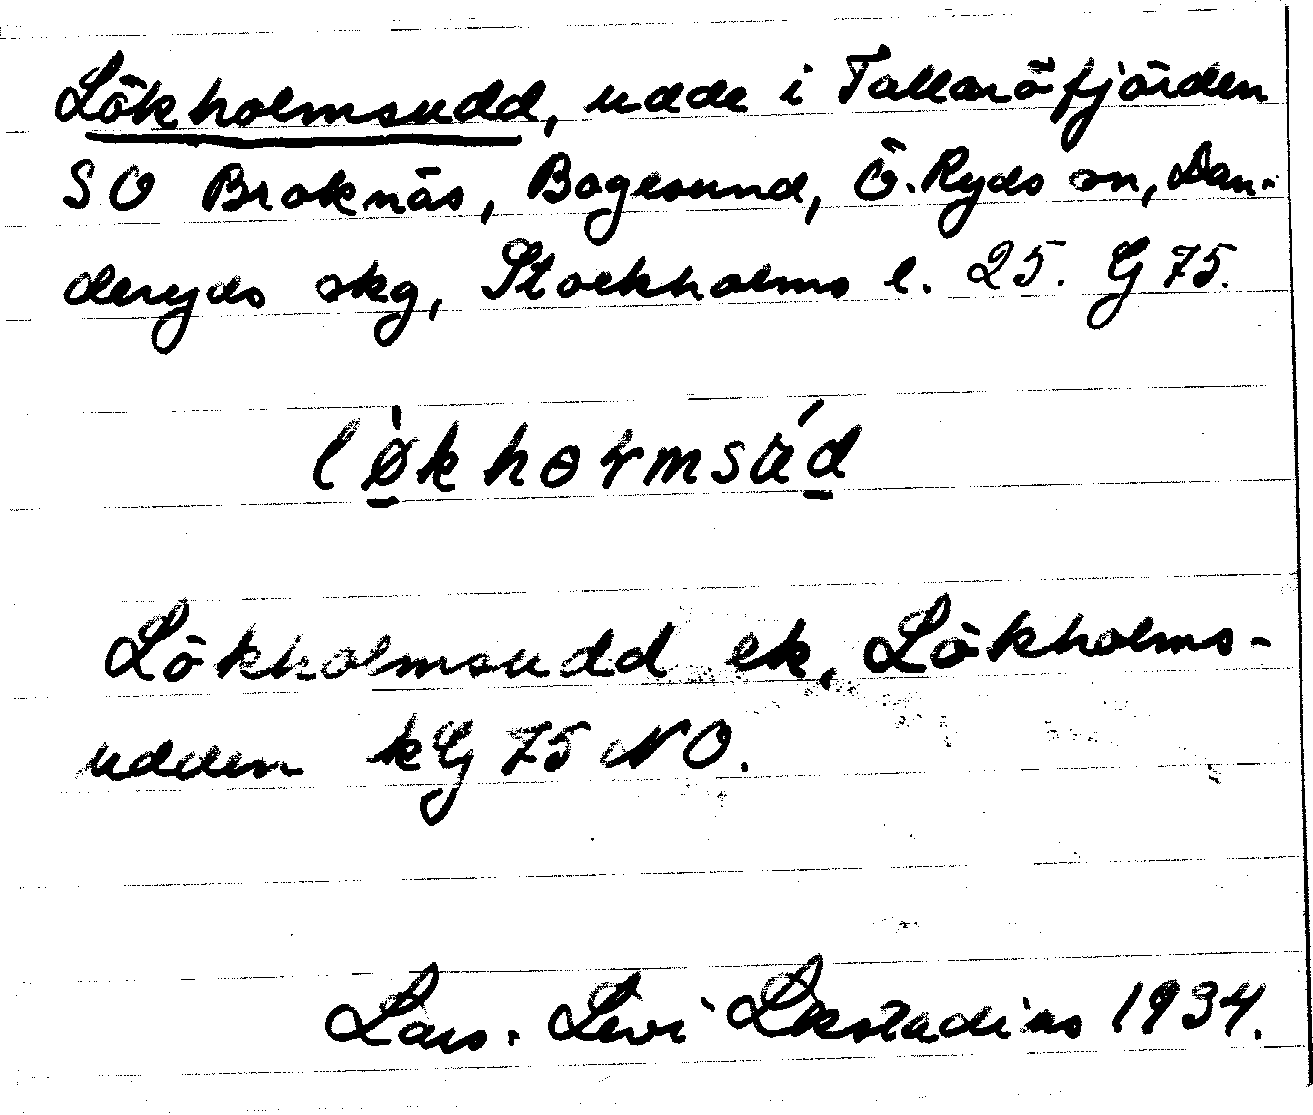 Lökholmsudd, udde i Tallaröfjärden
SO Broknäs, Bogesund, Ö. Ryds sn, Dan-
deryds skg, Stockholms l. 25. G 75.
Lökholmsudd ek, Lökholms-
udden kG 75 NO.
Lars. Levi Læstadius 1934.